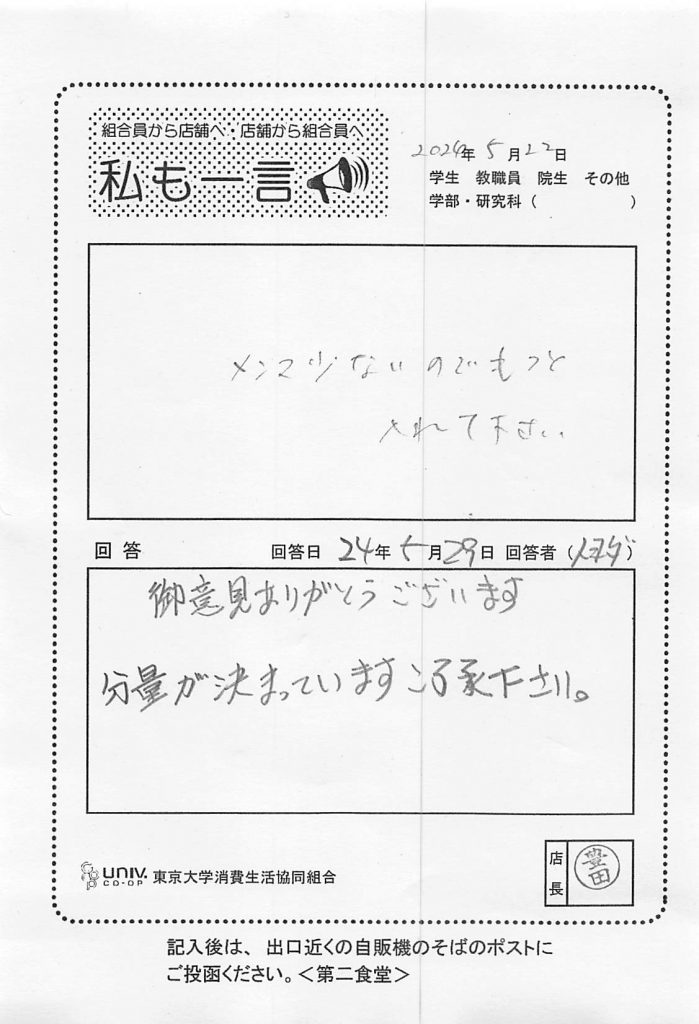 組合員から店舗へ・店舗から組合員へ
私も一言
2024年 5月22日
学生 教職員 院生 その他
学部・研究科( )
メンマ少ないのでもっと
入れて下さい
回答 回答日 24年5月29日 回答者(トヨダ)
御意見ありがとうございます
分量が決まっていますご了承下さい。
UNIV. CO-OP 東京大学消費生活協同組合
店長 豊田
記入後は、出口近くの自販機のそばのポストに
ご投函ください。<第二食堂>